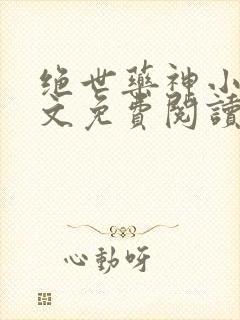 绝世藥神小
文免費閱讀
心動呀